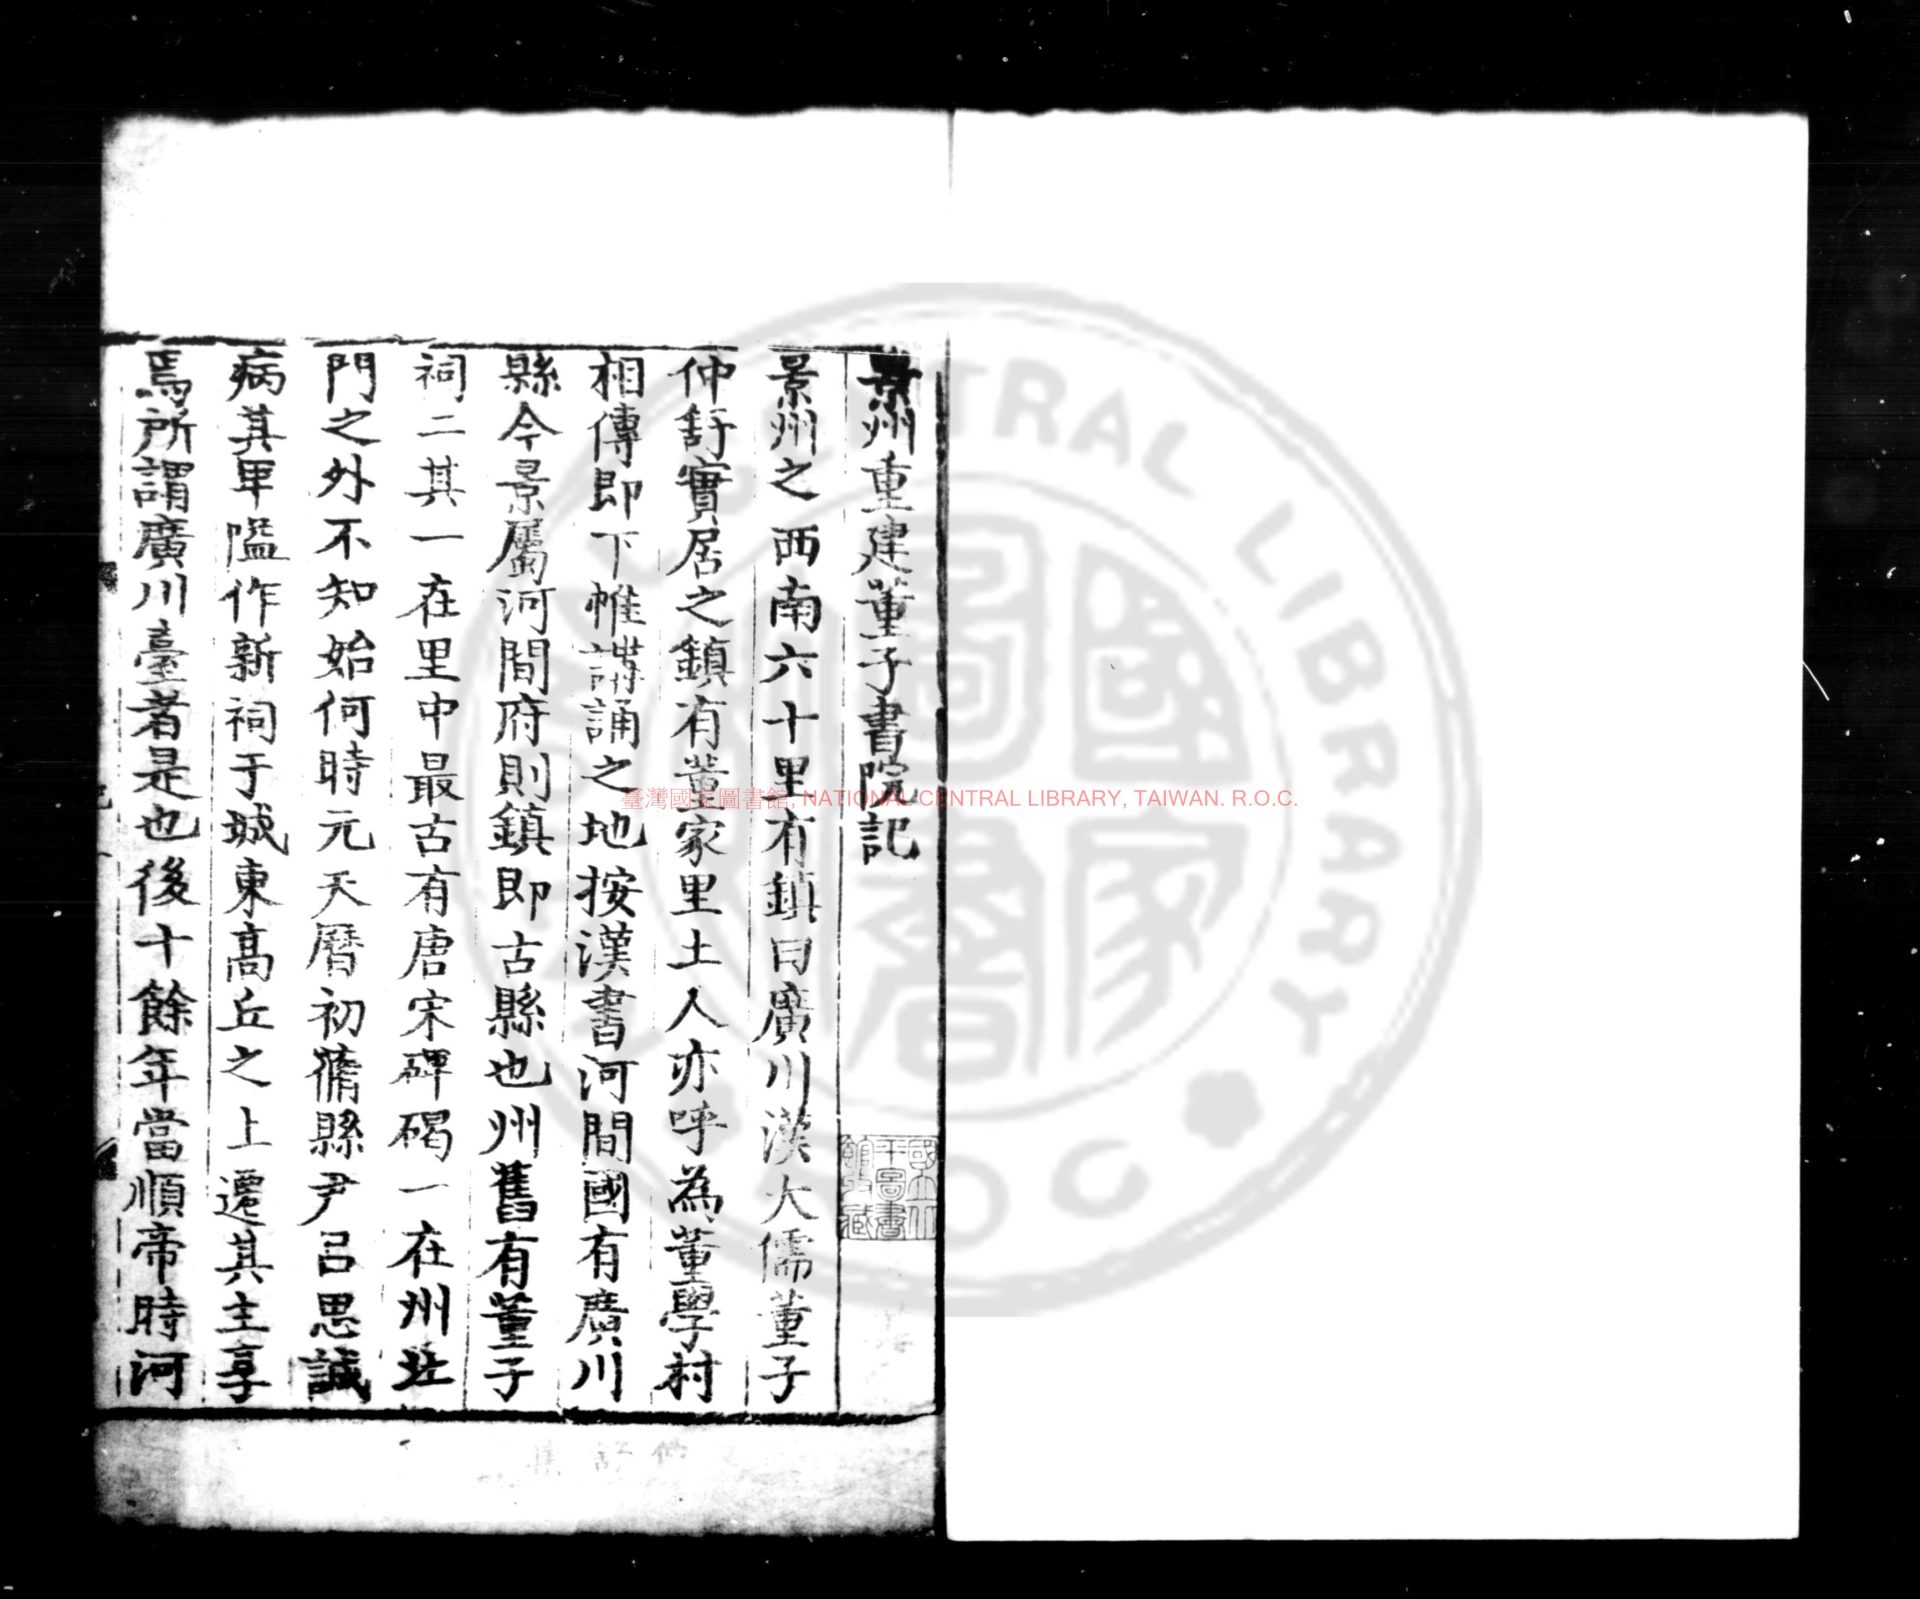 景州重建董子書院記
景州之西南六十里有鎮曰廣川漢大儒董子
仲舒實居之鎮有董家里土人亦呼為董學村
相傳即下帷講誦之地按漢書河間國有廣川
縣今景屬河間府則鎮即古縣也州舊有董子
祠二其一在里中最古有唐宋碑碣一在州北
門之外不知始何時元天曆初蓨縣尹呂思誠
病其卑隘作新祠于城東高丘之上遷其主享
焉所謂廣川臺者是也後十餘年當順帝時河
國立北平圖書館收藏
臺灣國家圖書館, NATIONAL CENTRAL LIBRARY, TAIWAN. R.O.C.